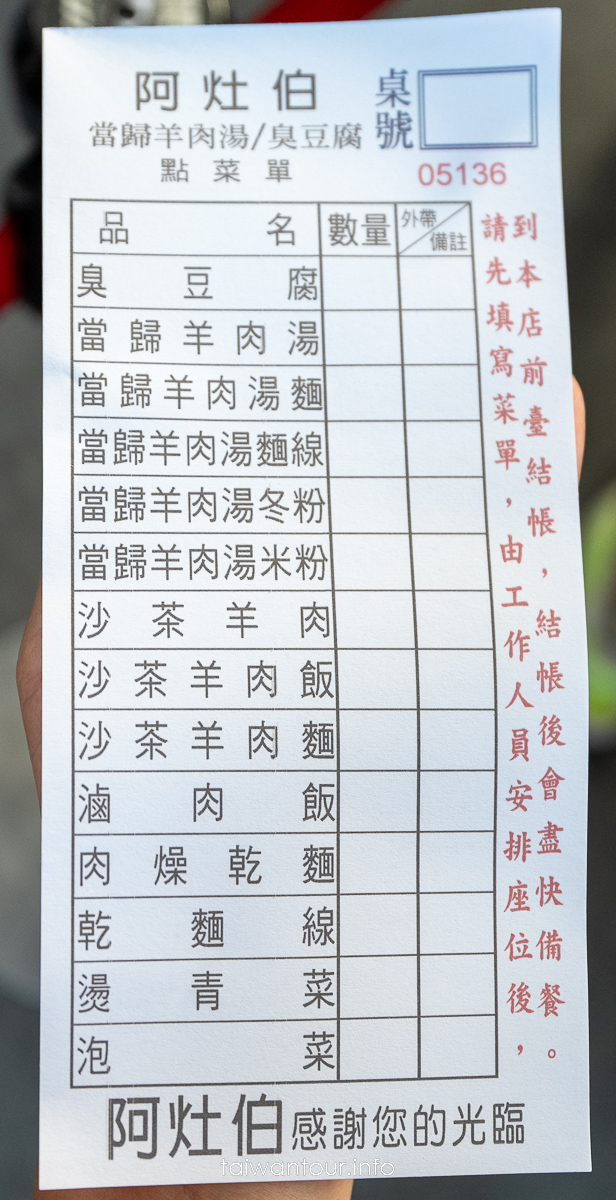 阿灶伯
當歸羊肉湯/臭豆腐
點菜單
桌號
05136
品名 數量 外帶 備註
臭豆腐
當歸羊肉湯
當歸羊肉湯麵
當歸羊肉湯麵線
當歸羊肉湯冬粉
當歸羊肉湯米粉
沙茶羊肉
沙茶羊肉飯
沙茶羊肉麵
滷肉飯
肉燥乾麵
乾麵線
燙青菜
泡菜
請先填寫菜單，由工作人員安排座位後，
到本店前臺結帳，結帳後會盡快備餐。
阿灶伯感謝您的光臨
taiwantour.info